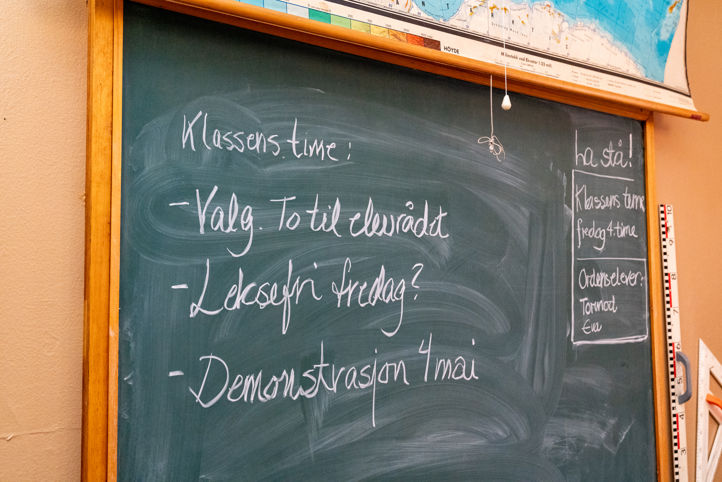 HÖYDE
Klassens time:
- Valg. To til elevrådet
- Leksefri fredag?
- Demonstrasjon 4 mai
La stå!
Klassens time
fredag 4. time
Ordenselever:
Tormod
Eva